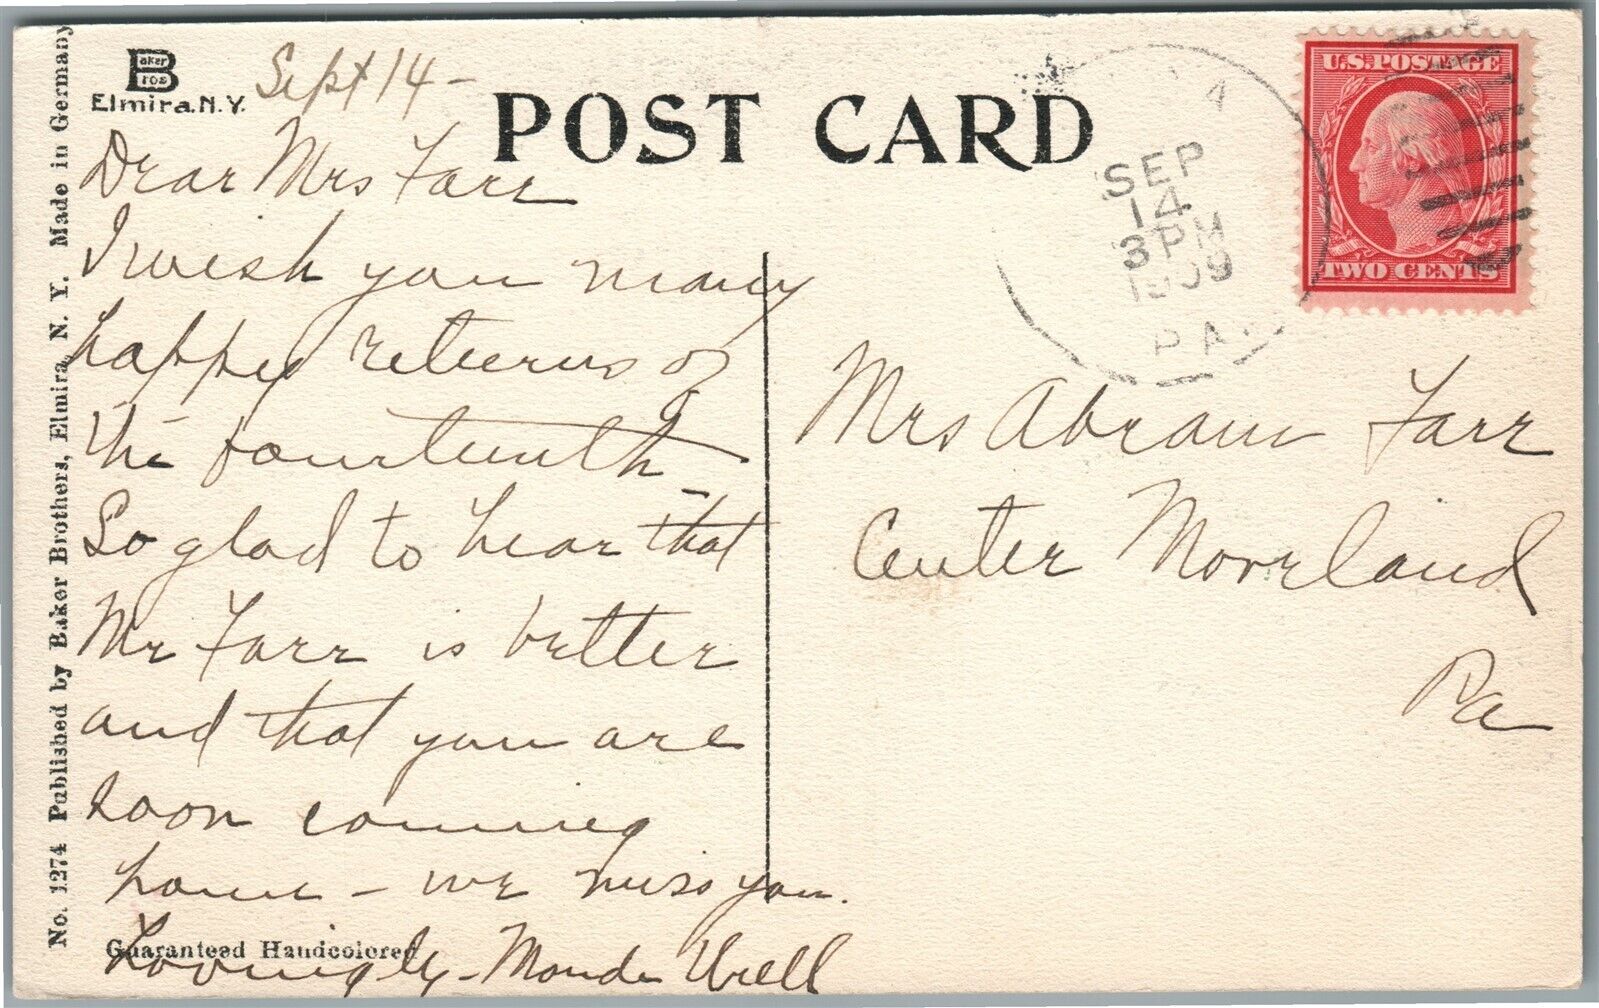 Baker Bros
Elmira, N.Y.
Sept 14 -
POST CARD
SEP
14
3 PM
1909
PA
U.S. POSTAGE
TWO CENTS
Dear Mrs Farr
I wish you many
happy returns of
the fourteenth -
So glad to hear that
Mr Farr is better
and that you are
soon coming
home - we miss you.
Lovingly - Maude
Guaranteed Handcolored
Mrs Abram Farr
Center Moreland
Pa
No. 1274 Published by Baker Brothers, Elmira, N. Y. Made in Germany